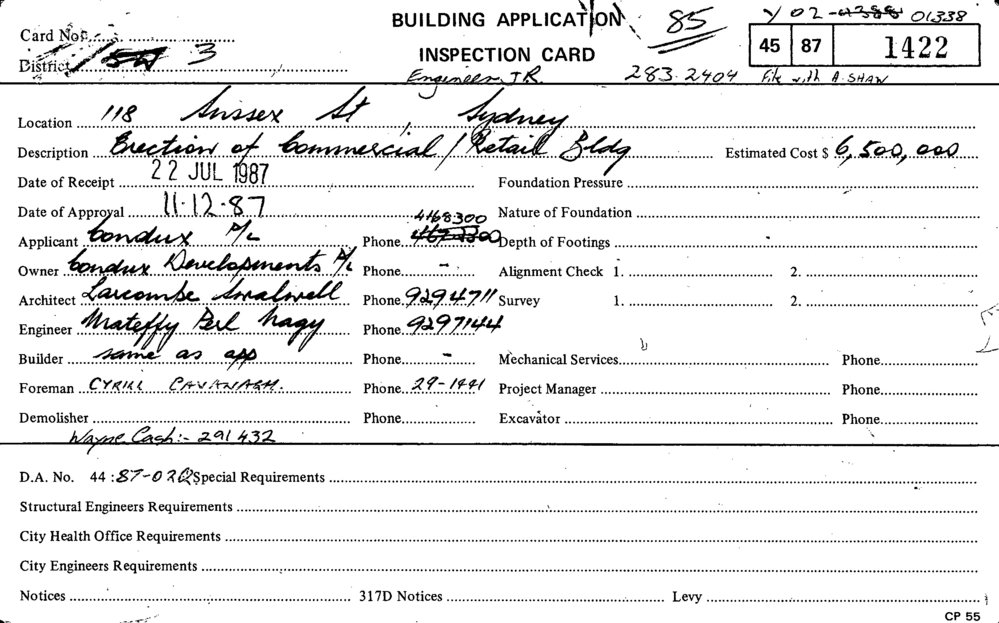 BUILDING APPLICATION 85 Y 02- 01338
Card No.
INSPECTION CARD 45 87 1422
District 3
Engineer J.R. 283.2404 File with A. SHAW
Location 118 Sussex St, Sydney
Description Erection of Commercial / Retail Bldg Estimated Cost $ 6,500,000
Date of Receipt 22 JUL 1987 Foundation Pressure
Date of Approval 11.12.87 4168300 Nature of Foundation
Applicant Condux P/L Phone Depth of Footings
Owner Condux Developments P/L Phone - Alignment Check 1. 2.
Architect Larcombe Smalwell Phone 9294711 Survey 1. 2.
Engineer Mateffy Perl Nagy Phone 9297144
Builder same as app Phone - Mechanical Services Phone
Foreman CYRILL CAVANAGH. Phone 29-1441 Project Manager Phone
Demolisher Phone Excavator Phone
Wayne Cash:- 291432
D.A. No. 44 : 87-02 Special Requirements
Structural Engineers Requirements
City Health Office Requirements
City Engineers Requirements
Notices 317D Notices Levy
CP 55